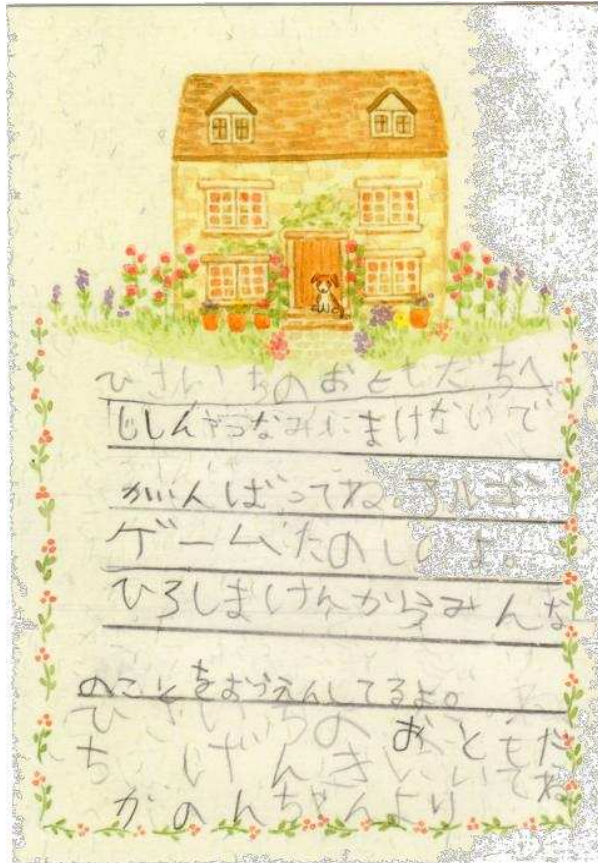 ひさいちのおともだちへ
じしんやつなみにまけないで
がんばってね。アルゴ
ゲームたのしいよ。
ひろしまけんからみんな
のことをおうえんしてるよ。
ひさいちのおともだ
ちげんきいてね
かのんちゃんより